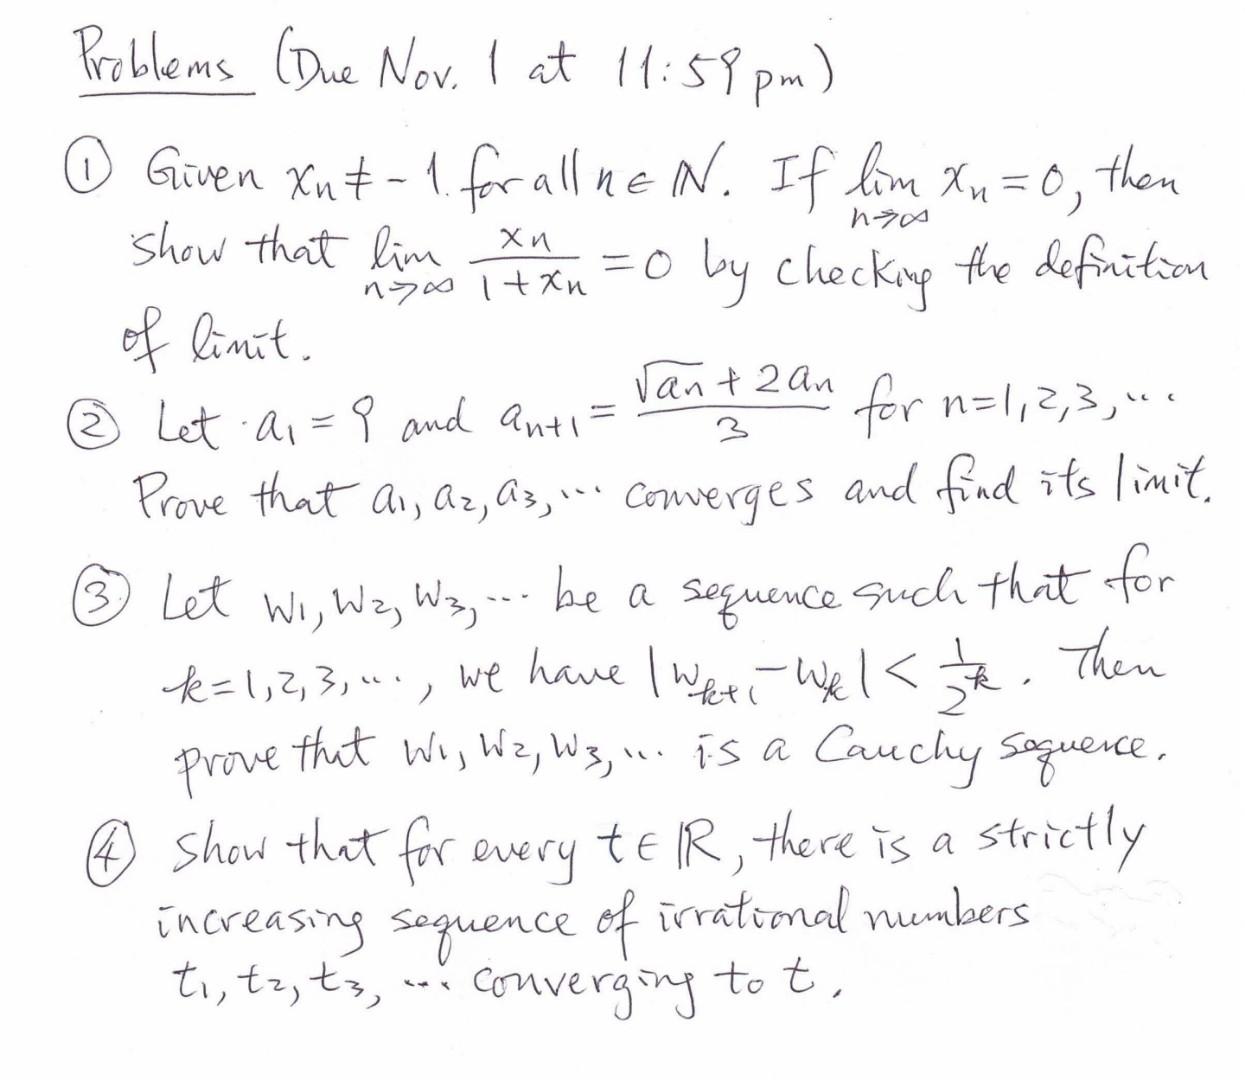 Problems (Due Nov. 1 at 11:59 pm)
① Given xₙ ≠ -1 for all n ∈ ℕ. If lim_{n→∞} xₙ = 0, then
show that lim_{n→∞} xₙ/(1+xₙ) = 0 by checking the definition
of limit.
② Let a₁ = 9 and aₙ₊₁ = (√aₙ + 2aₙ)/3 for n=1,2,3,...
Prove that a₁, a₂, a₃, ... converges and find its limit.
③ Let w₁, w₂, w₃, ... be a sequence such that for
k=1,2,3,..., we have |wₖ₊₁ - wₖ| < 1/2ᵏ. Then
prove that w₁, w₂, w₃, ... is a Cauchy sequence.
④ Show that for every t ∈ ℝ, there is a strictly
increasing sequence of irrational numbers
t₁, t₂, t₃, ... converging to t.